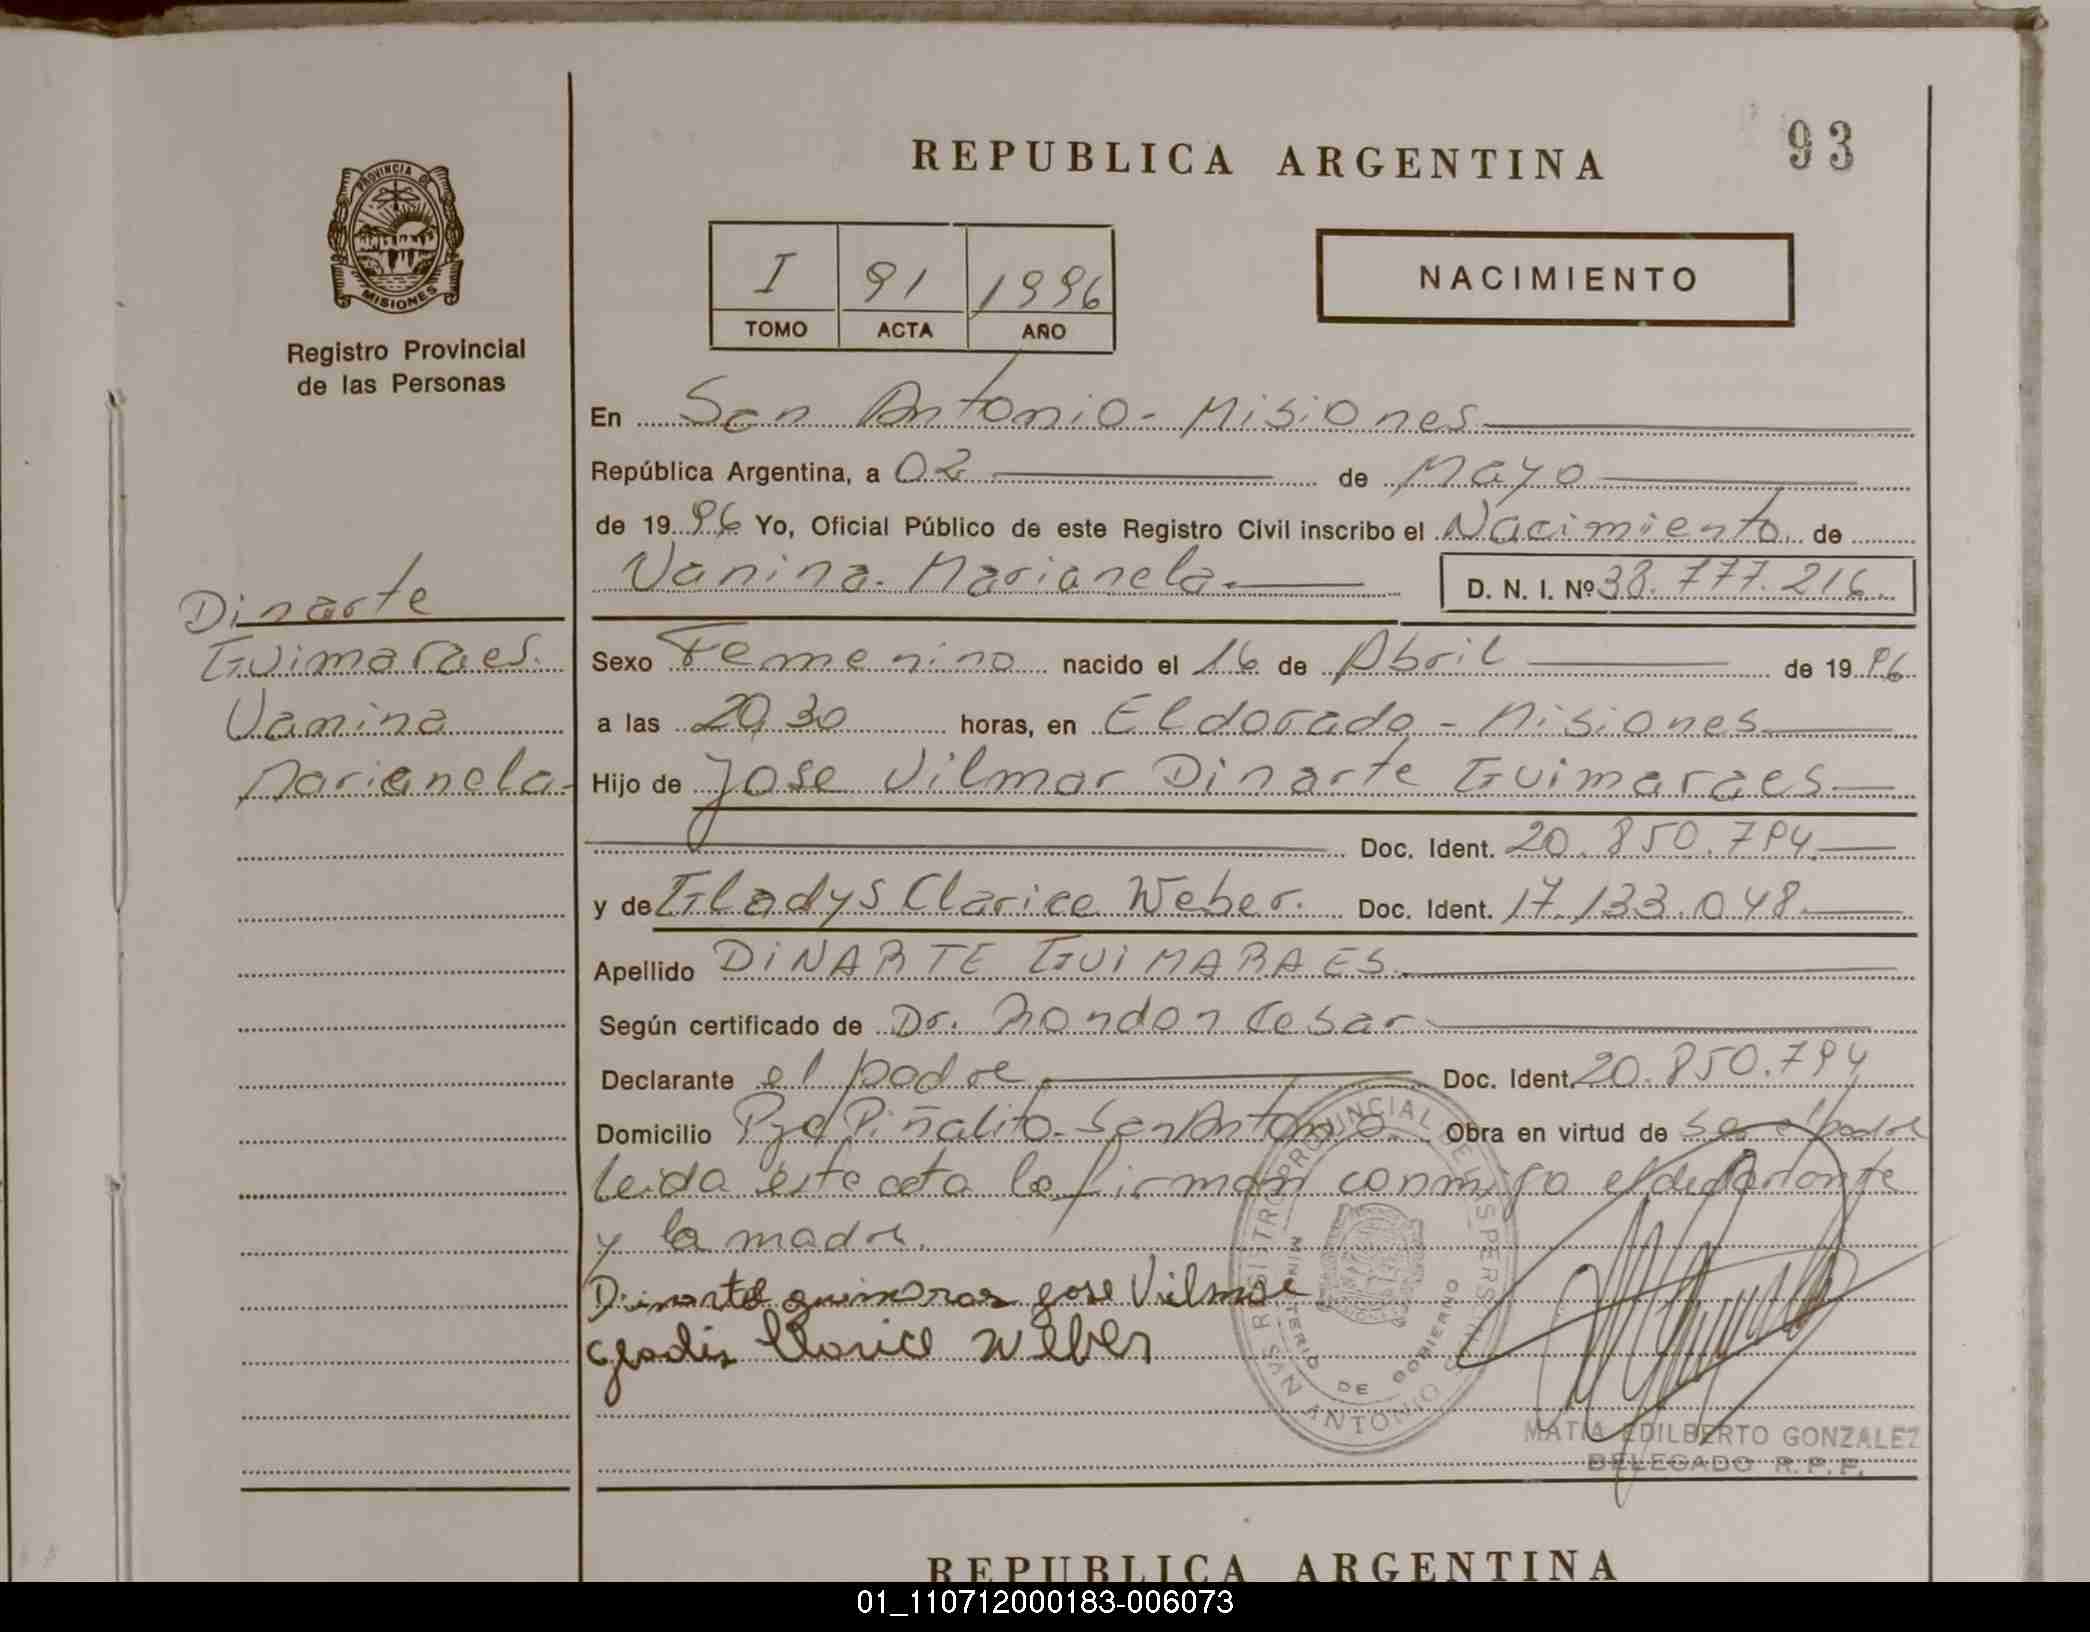 93
REPUBLICA ARGENTINA
PROVINCIA DE
MISIONES
Registro Provincial
de las Personas
I 91 1996
TOMO ACTA AÑO
NACIMIENTO
En San Antonio - Misiones
República Argentina, a 02 de Mayo
de 1996 Yo, Oficial Público de este Registro Civil inscribo el Nacimiento de
Vanina Marianela
D. N. I. Nº 38.777.216
Dinarte
Guimaraes
Vanina
Marianela
Sexo Femenino nacido el 16 de Abril de 1996
a las 20,30 horas, en Eldorado - Misiones
Hijo de Jose Vilmar Dinarte Guimaraes
Doc. Ident. 20.850.794
y de Gladys Clarice Weber. Doc. Ident. 17.133.048
Apellido DINARTE GUIMARAES
Según certificado de Dr. Mondon Cesar
Declarante el padre Doc. Ident. 20.850.794
Domicilio Pje Piñalito - San Antonio. Obra en virtud de ser el padre
leida este acta la firman conmigo el declarante
y la madre.
Dinarte guimaraes jose Vilmar
Gladis Clarice Weber
REGISTRO PROVINCIAL DE LAS PERSONAS
MINISTERIO DE GOBIERNO
SAN ANTONIO
MATIA EDILBERTO GONZALEZ
DELEGADO R. P. P.
REPUBLICA ARGENTINA
01_110712000183-006073